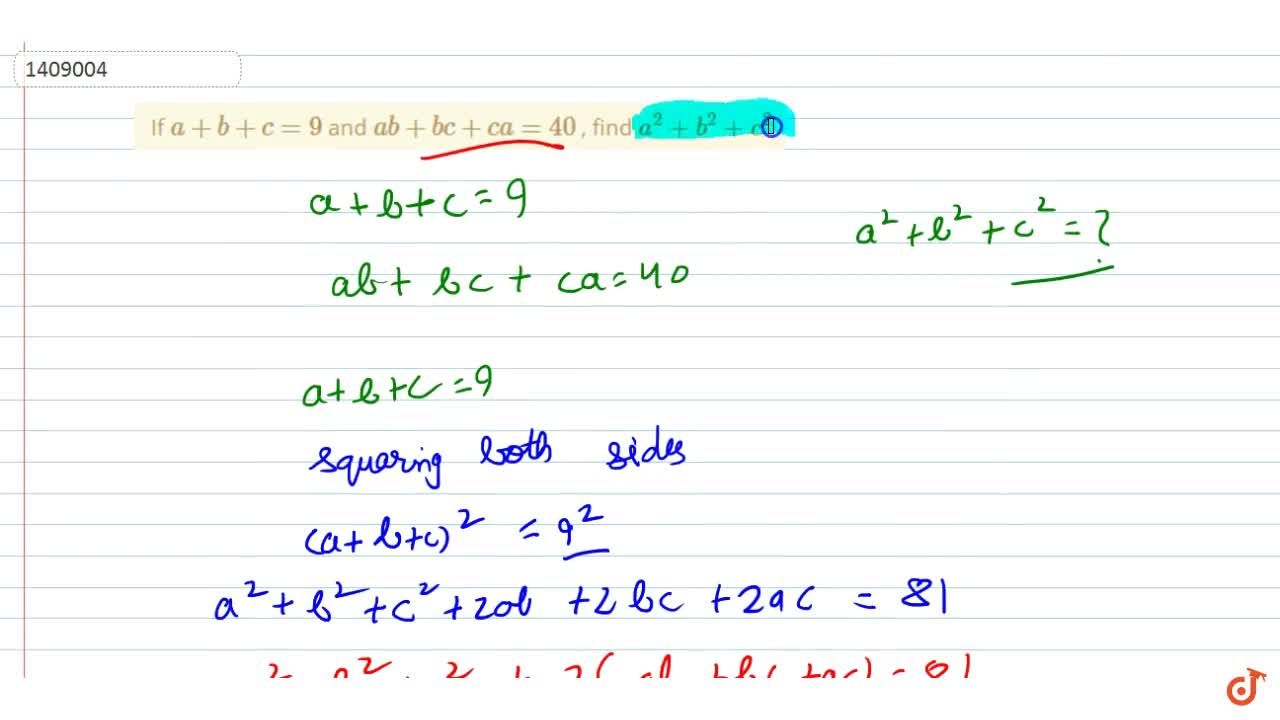 1409004
If a + b + c = 9 and ab + bc + ca = 40 , find a² + b² + c²
a+b+c=9
a²+b²+c²=?
ab+ bc + ca=40
a+b+c=9
squaring both sides
(a+b+c)² = 9²
a²+b²+c²+2ab +2bc +2ac = 81